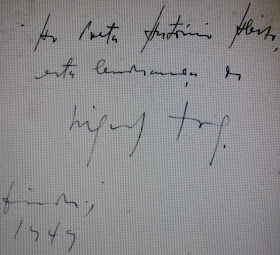 Ao Poeta António
esta lembrança de
Miguel Torga.
1949